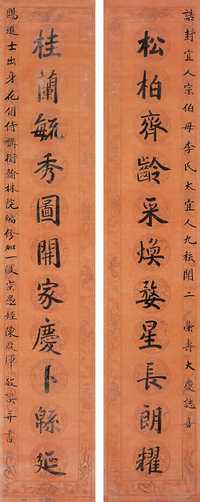 誥封宜人宗伯母李氏太宜人九秩開二 榮壽大慶誌喜
松柏齊齡采煥婺星長朗耀
桂蘭毓秀圖開家慶卜緜延
賜進士出身花翎侍講銜翰林院編修加一級宗愚姪陳 敬撰并書